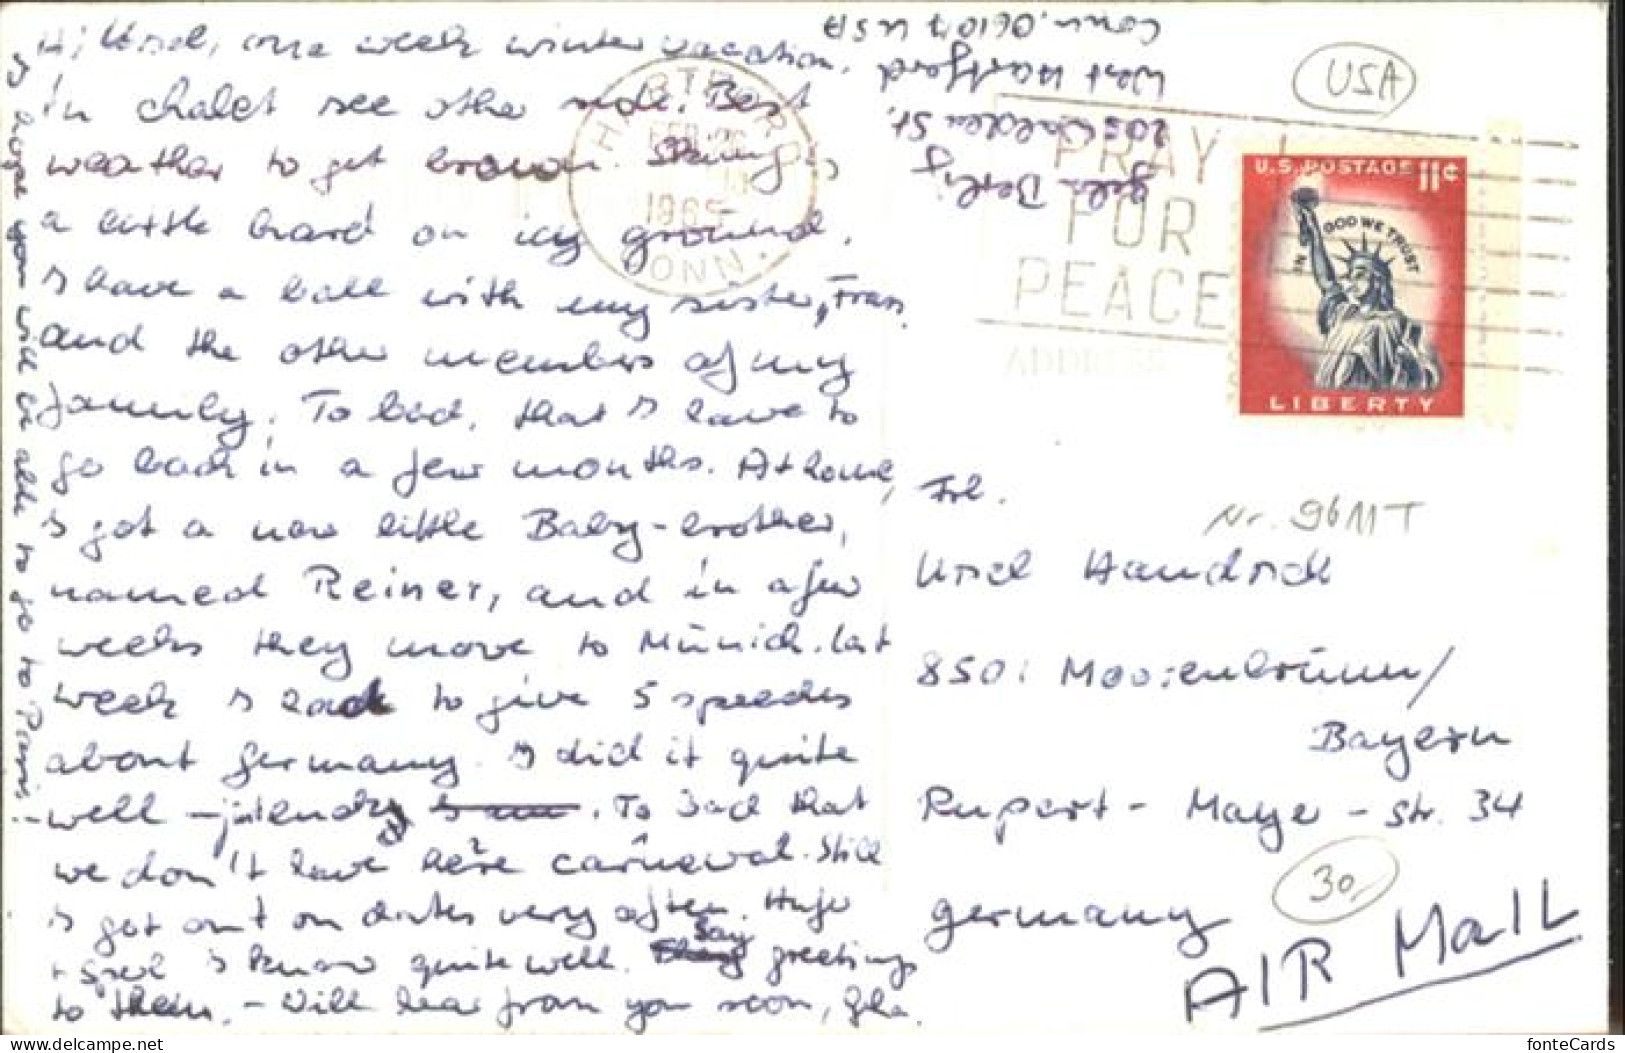 Hi Ursel, one week winter vacation.
in chalet see other side. Best
weather to get brown. Skiing is
a little hard on icy ground.
I have a ball with my sister, Fran
and the other members of my
family. To bad, that I have to
go back in a few months. At home,
I got a new little Baby-brother,
named Reiner, and in a few
weeks they move to Münich. last
week I had to give 5 speeches
about germany. I did it quite
well. To sad that
we don't have here carneval. Still
I got out on dates very often.
I know quite well. Say greetings
to them. - Will hear from you soon, Gela.
I hope you will be able to go to Paris!
Gela
205 Walden St.
West Hartford
Conn. 06107 USA
USA
HARTFORD
FEB
1965
CONN.
PRAY
FOR
PEACE
ADDRESS
U.S. POSTAGE 11¢
IN GOD WE TRUST
LIBERTY
Frl.
Nr. 9611T
Ursel
8501 Moosenbrunn/
Bayern
Rupert-Mayer-Str. 34
germany
30,
AIR MAIL
fonteCards